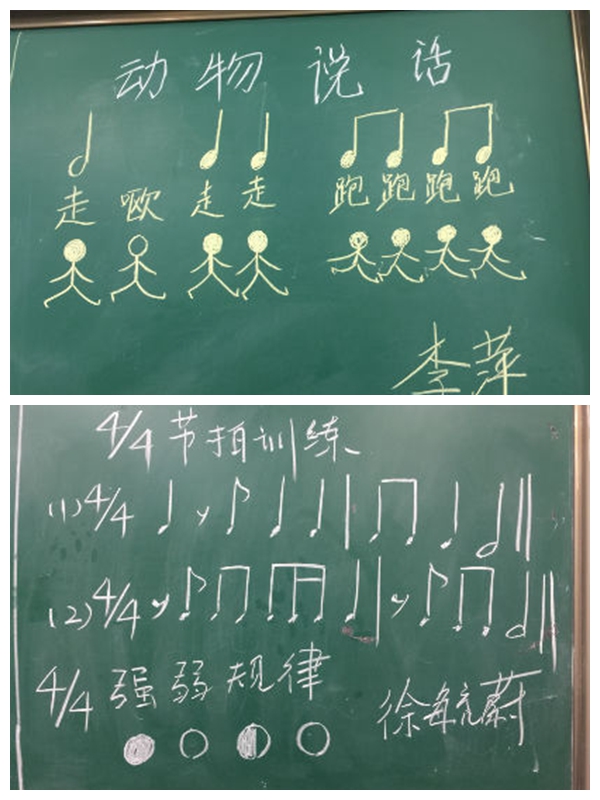 动物说话
走 呕 走 走 跑 跑 跑 跑
李萍
4/4 节拍训练
(1) 4/4
(2) 4/4
4/4 强弱规律
徐毓蔚